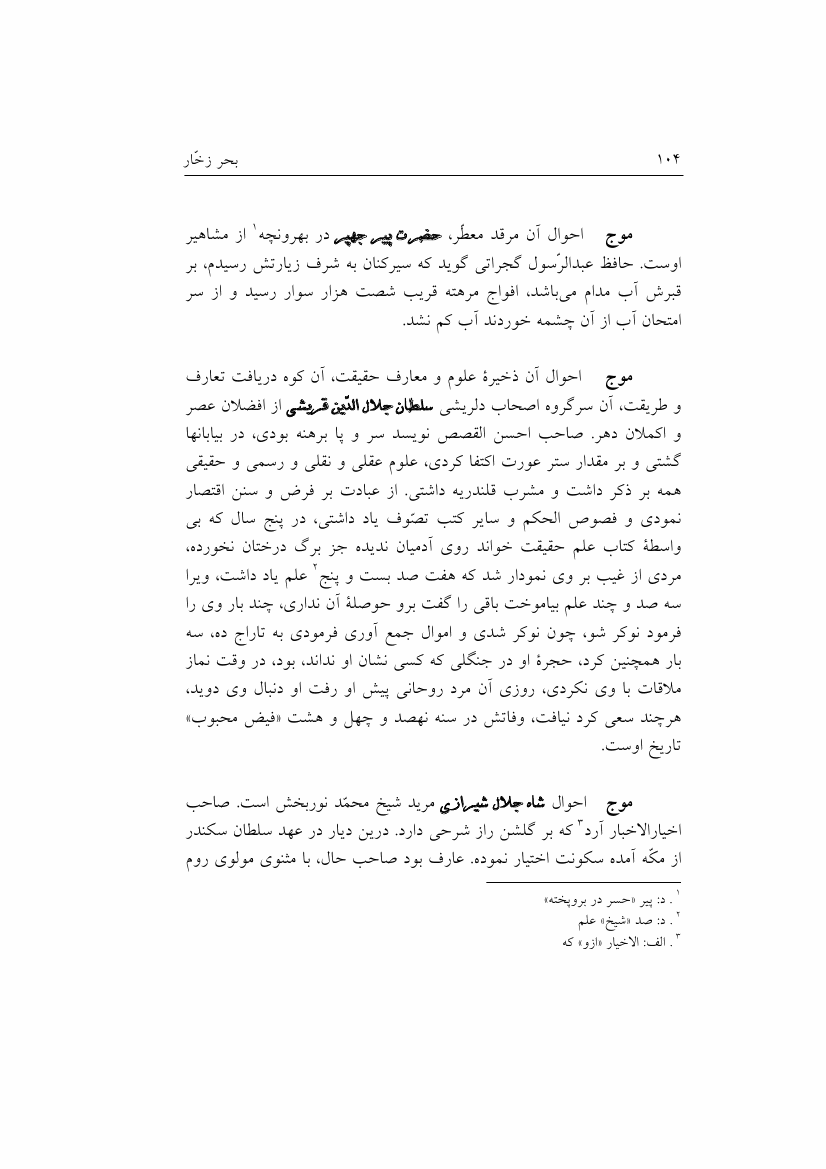 ۱۰۴ بحر زخّار
موج احوال آن مرقد معطّر، حضرت پیر جهیر در بهرونچه۱ از مشاهیر
اوست. حافظ عبدالرّسول گجراتی گوید که سیرکنان به شرف زیارتش رسیدم، بر
قبرش آب مدام می‌باشد، افواج مرهته قریب شصت هزار سوار رسید و از سر
امتحان آب از آن چشمه خوردند آب کم نشد.
موج احوال آن ذخیرهٔ علوم و معارف حقیقت، آن کوه دریافت تعارف
و طریقت، آن سرگروه اصحاب دلریشی سلطان جلال الدّین قریشی از افضلان عصر
و اکملان دهر. صاحب احسن القصص نویسد سر و پا برهنه بودی، در بیابانها
گشتی و بر مقدار ستر عورت اکتفا کردی، علوم عقلی و نقلی و رسمی و حقیقی
همه بر ذکر داشت و مشرب قلندریه داشتی. از عبادت بر فرض و سنن اقتصار
نمودی و فصوص الحکم و سایر کتب تصّوف یاد داشتی، در پنج سال که بی
واسطهٔ کتاب علم حقیقت خواند روی آدمیان ندیده جز برگ درختان نخورده،
مردی از غیب بر وی نمودار شد که هفت صد بست و پنج۲ علم یاد داشت، ویرا
سه صد و چند علم بیاموخت باقی را گفت برو حوصلهٔ آن نداری، چند بار وی را
فرمود نوکر شو، چون نوکر شدی و اموال جمع آوری فرمودی به تاراج ده، سه
بار همچنین کرد، حجرهٔ او در جنگلی که کسی نشان او نداند، بود، در وقت نماز
ملاقات با وی نکردی، روزی آن مرد روحانی پیش او رفت او دنبال وی دوید،
هرچند سعی کرد نیافت، وفاتش در سنه نهصد و چهل و هشت «فیض محبوب»
تاریخ اوست.
موج احوال شاه جلال شیرازی مرید شیخ محمّد نوربخش است. صاحب
اخیارالاخبار آرد۳ که بر گلشن راز شرحی دارد. درین دیار در عهد سلطان سکندر
از مکّه آمده سکونت اختیار نموده. عارف بود صاحب حال، با مثنوی مولوی روم
۱. د: پیر «حسر در بروپخته»
۲. د: صد «شیخ» علم
۳. الف: الاخیار «ازو» که